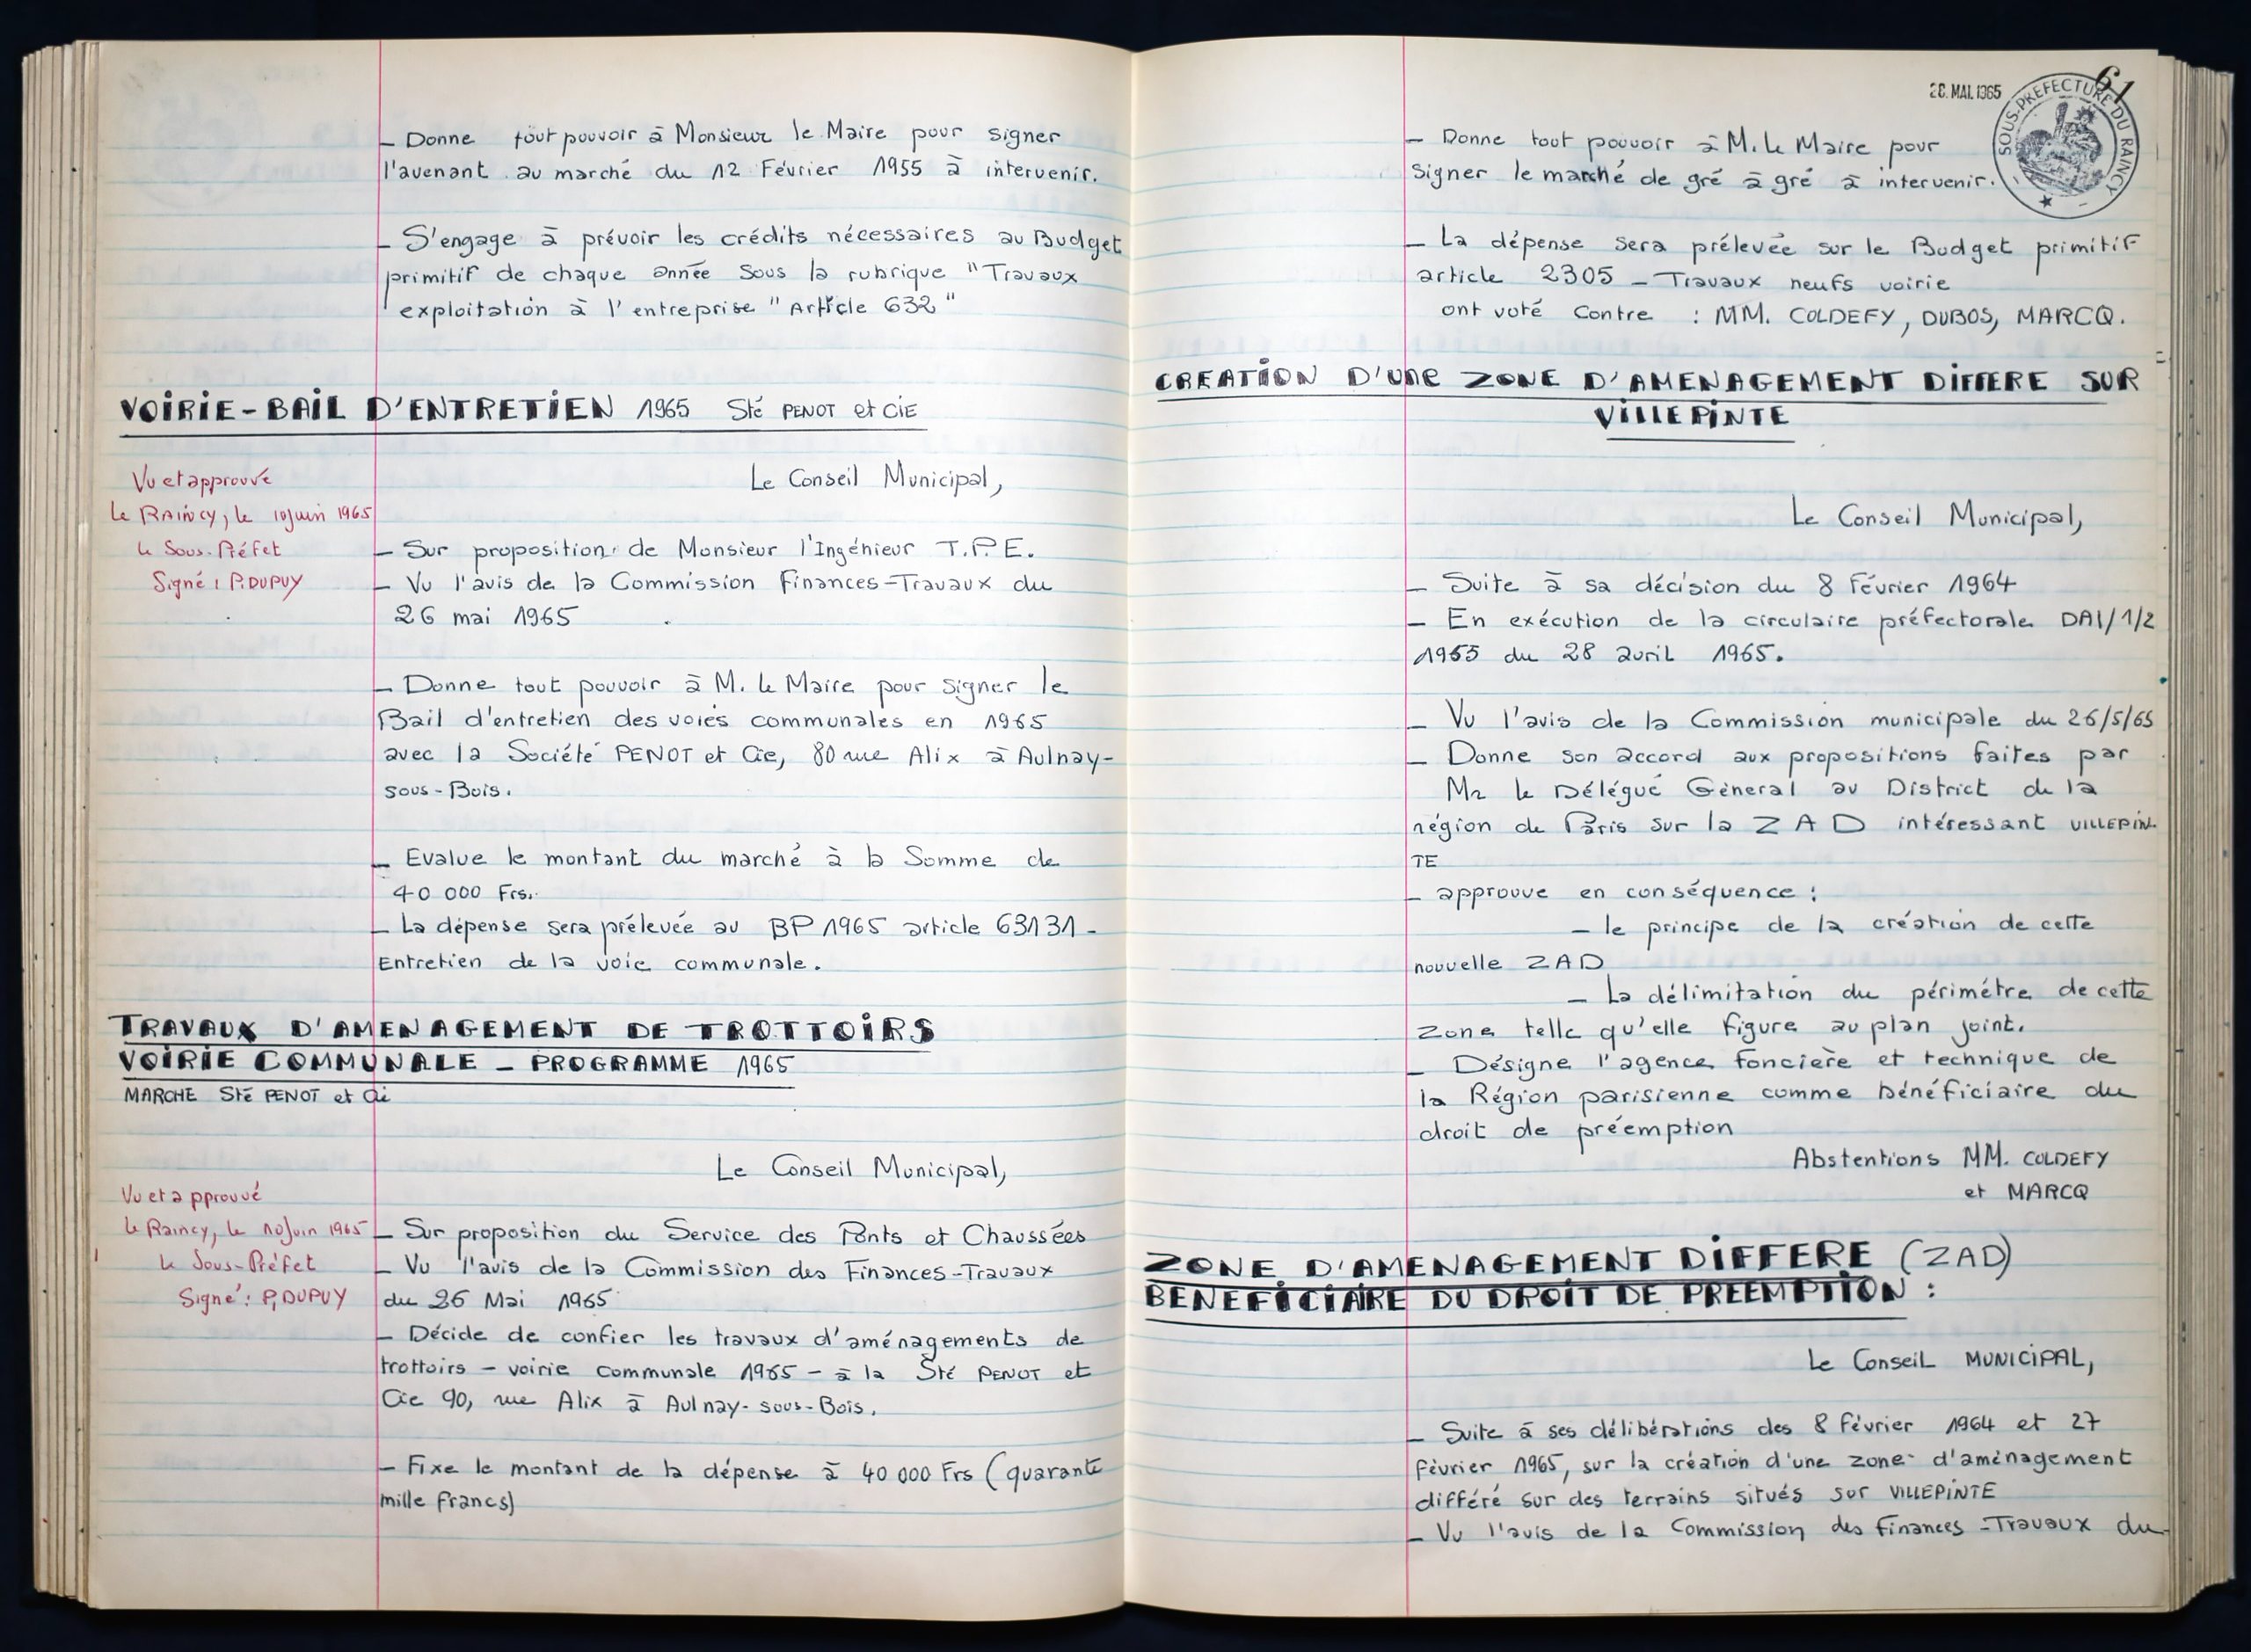 - Donne tout pouvoir à Monsieur le Maire pour signer
l'avenant au marché du 12 Février 1955 à intervenir.
- S'engage à prévoir les crédits nécessaires au Budget
primitif de chaque année sous la rubrique "Travaux
exploitation à l'entreprise "Article 632"
VOIRIE-BAIL D'ENTRETIEN 1965 Sté PENOT et CIE
Vu et approuvé
Le RAINCY, le 10 juin 1965
Le Sous-Préfet
Signé : P. DUPUY
Le Conseil Municipal,
- Sur proposition de Monsieur l'Ingénieur T.P.E.
- Vu l'avis de la Commission Finances-Travaux du
26 mai 1965
- Donne tout pouvoir à M. le Maire pour signer le
Bail d'entretien des voies communales en 1965
avec la Société PENOT et Cie, 80 rue Alix à Aulnay-
sous-Bois.
- Evalue le montant du marché à la Somme de
40 000 Frs.
- La dépense sera prélevée au BP 1965 article 63131 -
Entretien de la voie communale.
TRAVAUX D'AMENAGEMENT DE TROTTOIRS
VOIRIE COMMUNALE - PROGRAMME 1965
MARCHE Sté PENOT et Cie
Le Conseil Municipal,
Vu et approuvé
Le Raincy, le 10 Juin 1965
Le Sous-Préfet
Signé : P. DUPUY
- Sur proposition du Service des Ponts et Chaussées
- Vu l'avis de la Commission des Finances-Travaux
du 26 Mai 1965
- Décide de confier les travaux d'aménagements de
trottoirs - voirie communale 1965 - à la Sté PENOT et
Cie 90, rue Alix à Aulnay-sous-Bois.
- Fixe le montant de la dépense à 40 000 Frs (quarante
mille francs)
61
28. MAI. 1965
SOUS-PREFECTURE DU RAINCY
- Donne tout pouvoir à M. le Maire pour
signer le marché de gré à gré à intervenir.
- La dépense sera prélevée sur le Budget primitif
article 2305 - Travaux neufs voirie
ont voté contre : MM. COLDEFY, DUBOS, MARCQ.
CREATION D'UNE ZONE D'AMENAGEMENT DIFFERE SUR
VILLEPINTE
Le Conseil Municipal,
- Suite à sa décision du 8 Février 1964
- En exécution de la circulaire préfectorale DAI/1/2
1965 du 28 avril 1965.
- Vu l'avis de la Commission municipale du 26/5/65
- Donne son accord aux propositions faites par
Mr le Délégué Général au District de la
région de Paris sur la ZAD intéressant VILLEPIN-
TE
- approuve en conséquence :
- le principe de la création de cette
nouvelle ZAD
- La délimitation du périmétre de cette
zone telle qu'elle figure au plan joint.
- Désigne l'agence foncière et technique de
la Région parisienne comme bénéficiaire du
droit de préemption
Abstentions MM. COLDEFY
et MARCQ
ZONE D'AMENAGEMENT DIFFERE (ZAD)
BENEFICIAIRE DU DROIT DE PREEMPTION :
Le Conseil MUNICIPAL,
- Suite à ses délibérations des 8 février 1964 et 27
février 1965, sur la création d'une zone d'aménagement
différé sur des terrains situés sur VILLEPINTE
- Vu l'avis de la Commission des finances-Travaux du